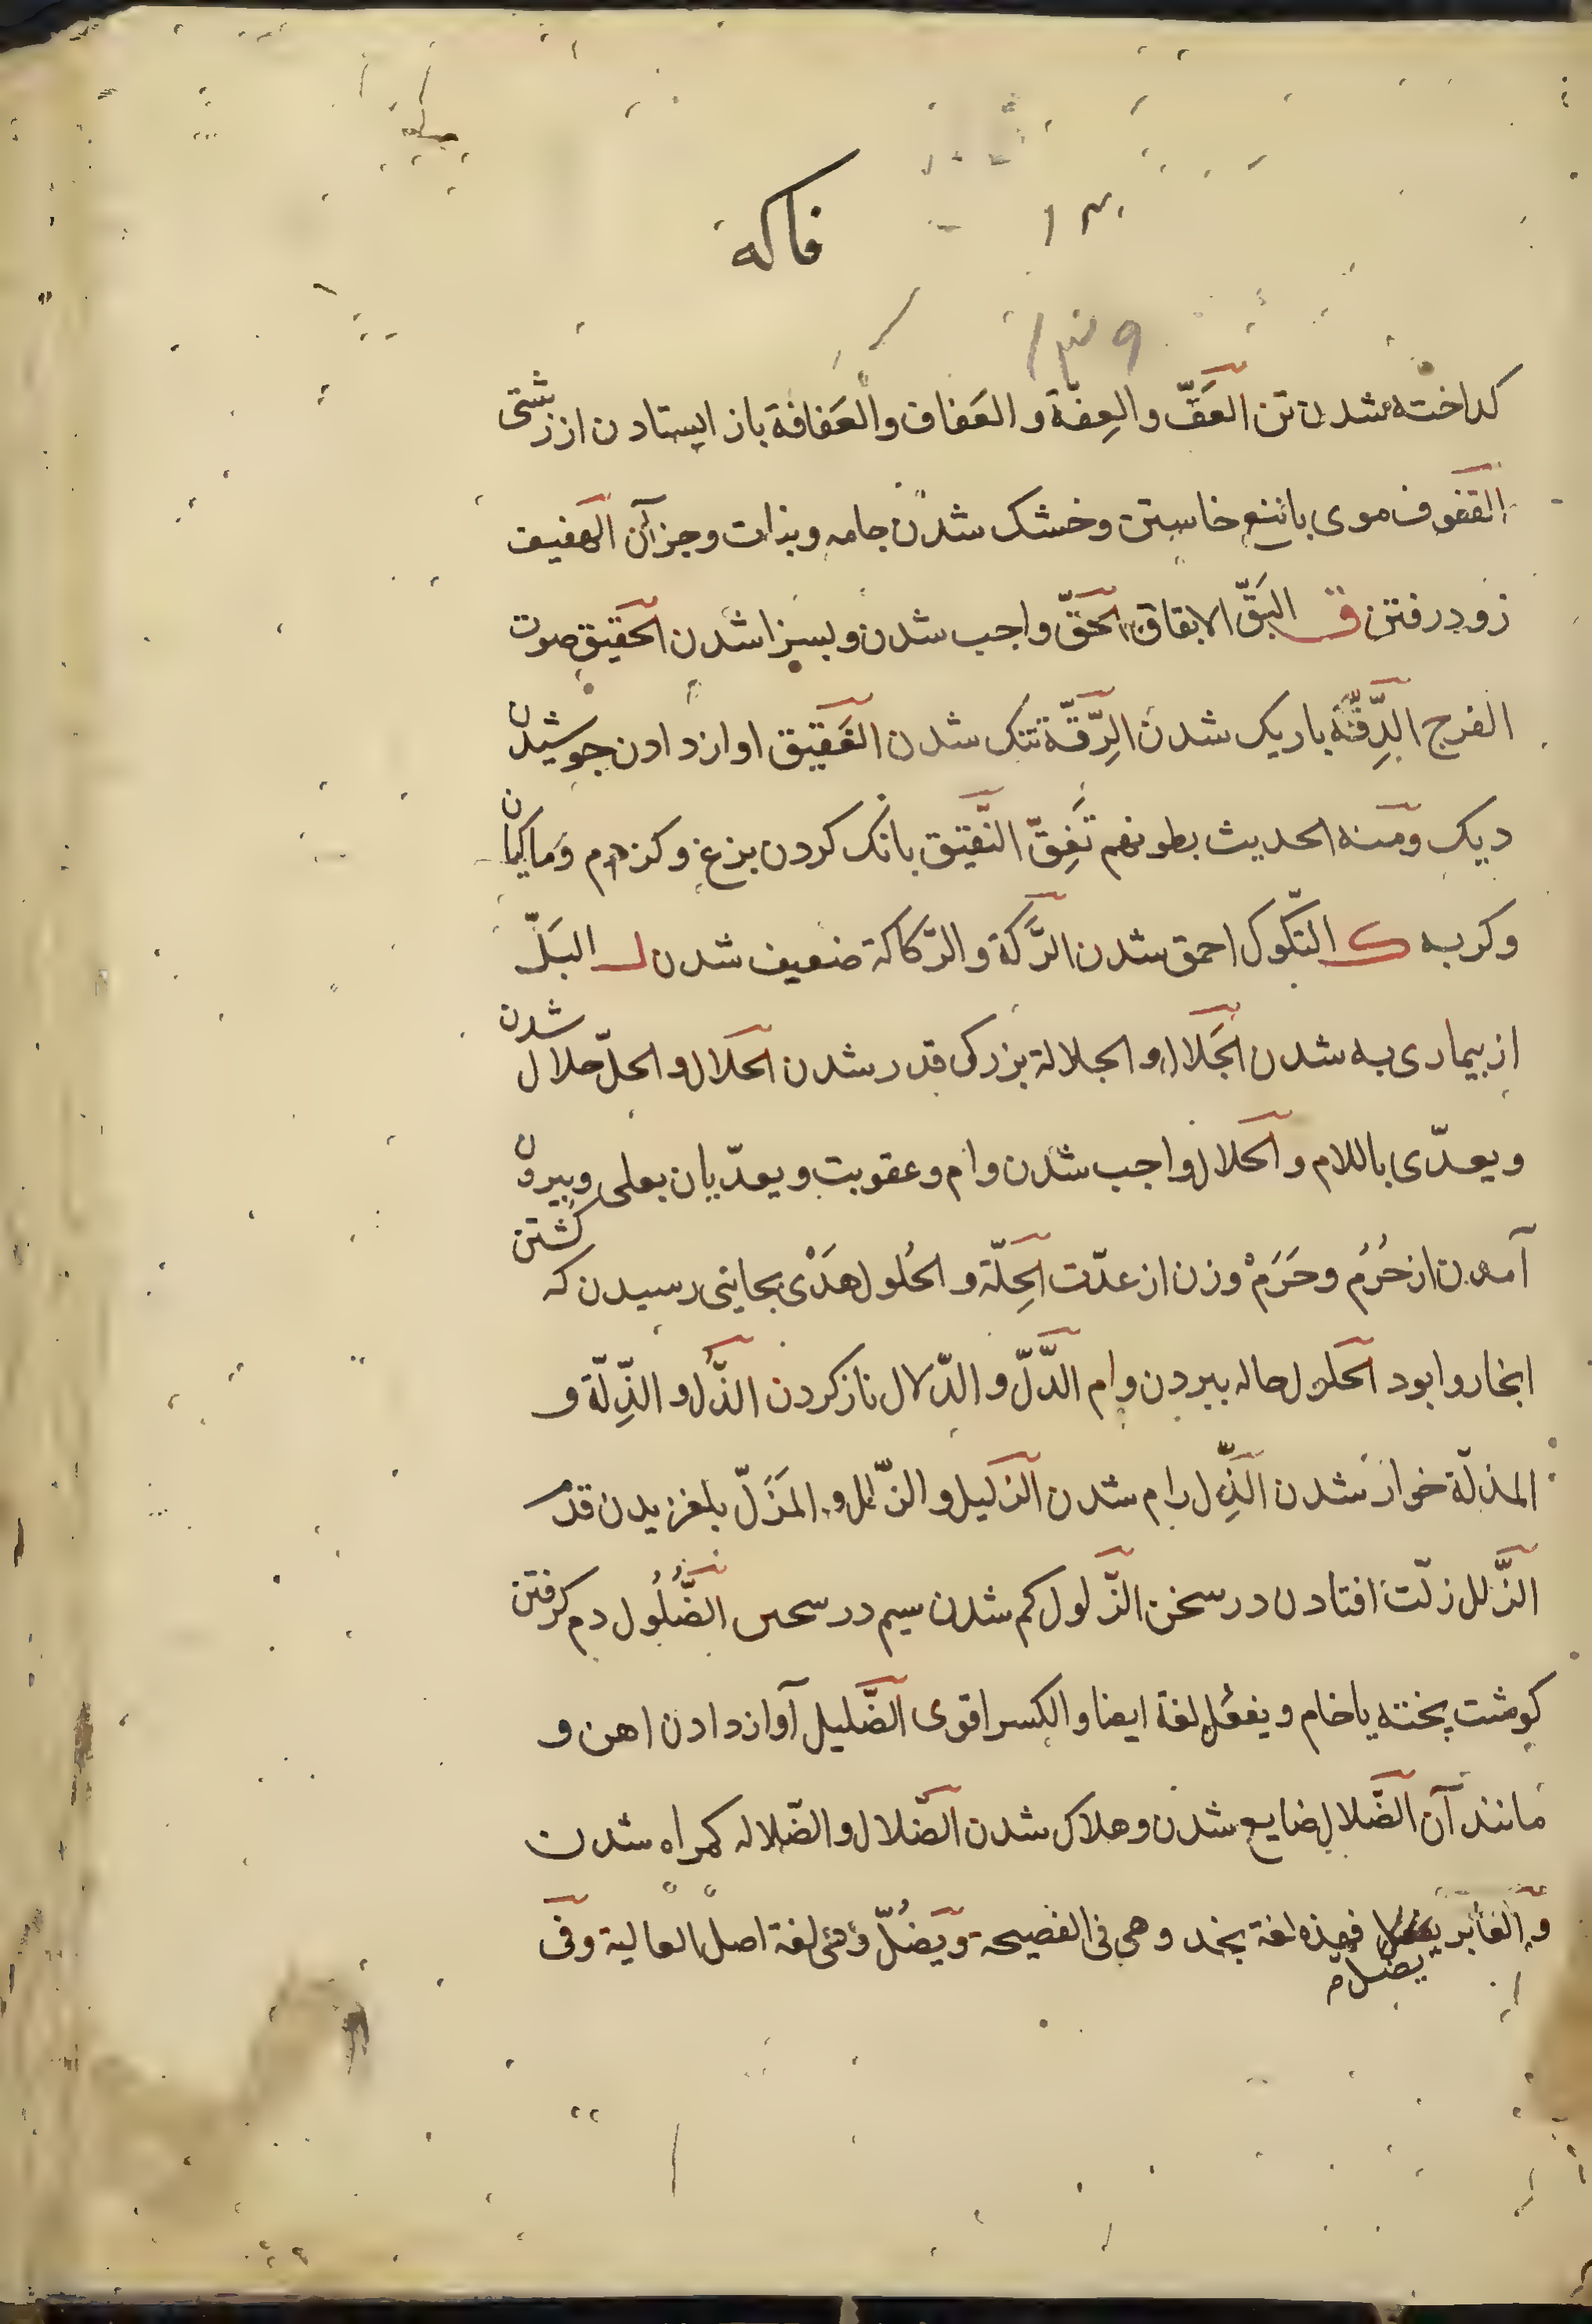 فاكه
كداخته شدن تن العَفّ والعِفّة والعَفاف والعَفافة باز ايستادن از زشتى
القفوف موى باتنع خاستن وخشك شدن جامه ونبات وجز آن الهفيف
زود رفتن ق البَقّ الابقاق الحَقّ واجب شدن وبسزا شدن الحقيق صوت
الفرج الدِّقّة باريك شدن الرِّقّة تنك شدن الغَقيق اواز دادن جوشيدن
ديك ومنه الحديث بطونهم تَغِقّ النَّقيق بانك كردن بزغ وكزدم وماكيان
وكربه ك التّكوك احمق شدن الرَّكّة والرّكاكة ضعيف شدن ل البَلّ
از بيمارى به شدن الجَلال والجلالة بزركى قدر شدن الحلال والحلّ حلال شدن
ويعدّى باللام والحلال واجب شدن وام وعقوبت ويعدّيان بعلى وبيرون
آمدن از حُرُم وحَرَمْ وزن از عدّت الحِلّة والحُلول هَدْى بجايى رسيدن كه كشتن
انجا روا بود الحلول حاله ببردن وام الدَّلّ والدّلال ناز كردن الذُّلّ والذِّلّة و
المذلّة خوار شدن الذِّل رام شدن الزليل والزّلل والمَزَلّ بلغزيدن قدم
الزَّلل زلّت افتادن در سخن الزّلول كم شدن سيم در سحى الضُّلُول دم كرفتن
كوشت پخته يا خام ويفعُل لغة ايضا والكسر اقوى الضَّليل آواز دادن اهن و
مانند آن الضَّلال ضايع شدن وهلاك شدن الضّلال والضّلاله كمراه شدن
والغابر يضلّ فهذه لغة بخد وهى فى الفصيحة ويَضُلّ وهى لغة اصل العالية وفى
يضل